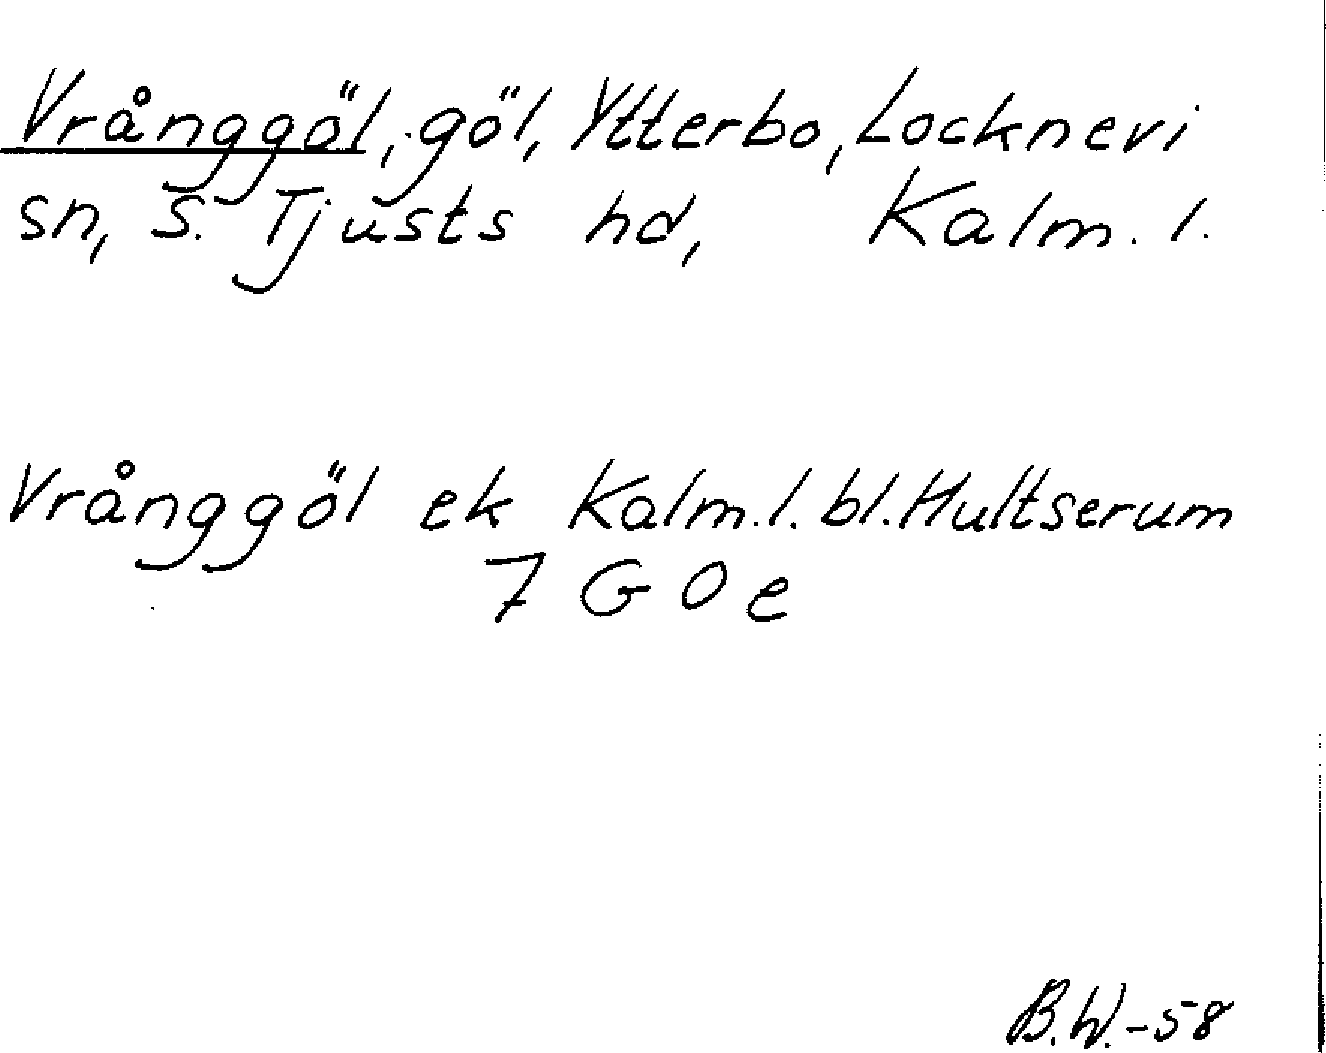 Vrånggöl, göl, Ytterbo, Locknevi
sn, S. Tjusts hd, Kalm. l.
Vrånggöl ek Kalm. l. bl. Hultserum
7 G O e
B.W.-58